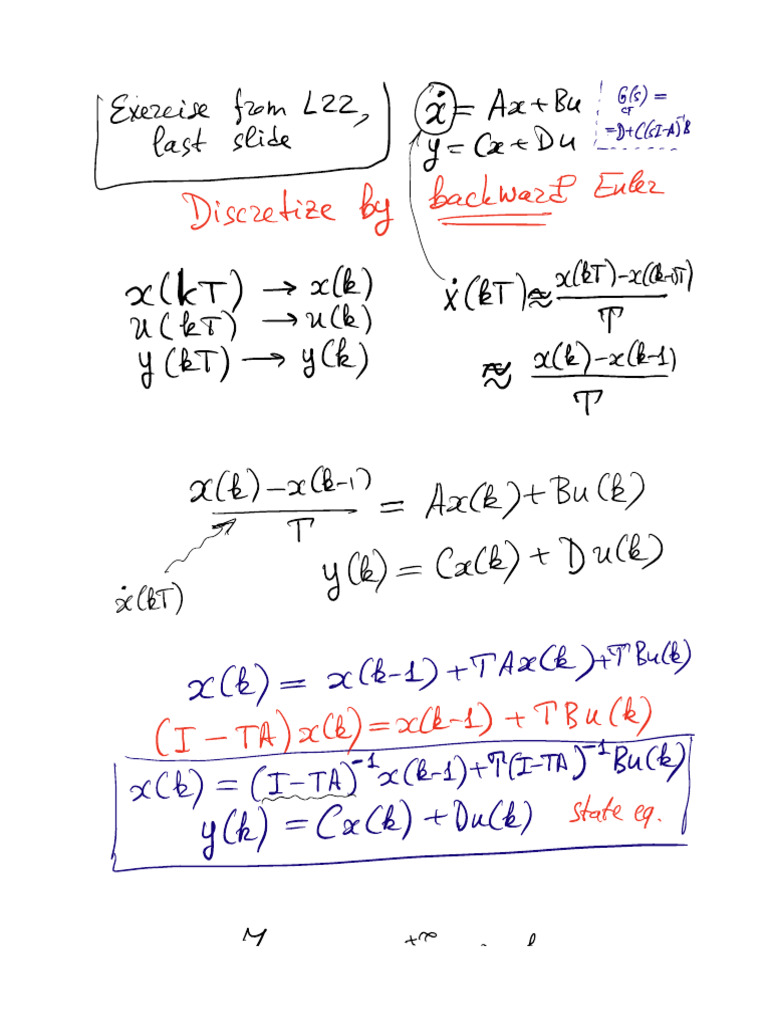 Exercise from L22,
last slide
ẋ = Ax+Bu
y = Cx+Du
G(s) =
CT
=D+C(sI-A)⁻¹B
Discretize by backward Euler
x(kT) → x(k)
u(kT) → u(k)
y(kT) → y(k)
ẋ(kT) ≈ (x(kT)-x((k-1)T))/T
≈ (x(k)-x(k-1))/T
(x(k)-x(k-1))/T = Ax(k)+Bu(k)
y(k) = Cx(k)+Du(k)
ẋ(kT)
x(k) = x(k-1)+TAx(k)+TBu(k)
(I-TA)x(k)=x(k-1)+TBu(k)
x(k) = (I-TA)⁻¹x(k-1)+T(I-TA)⁻¹Bu(k)
y(k) = Cx(k)+Du(k) state eq.